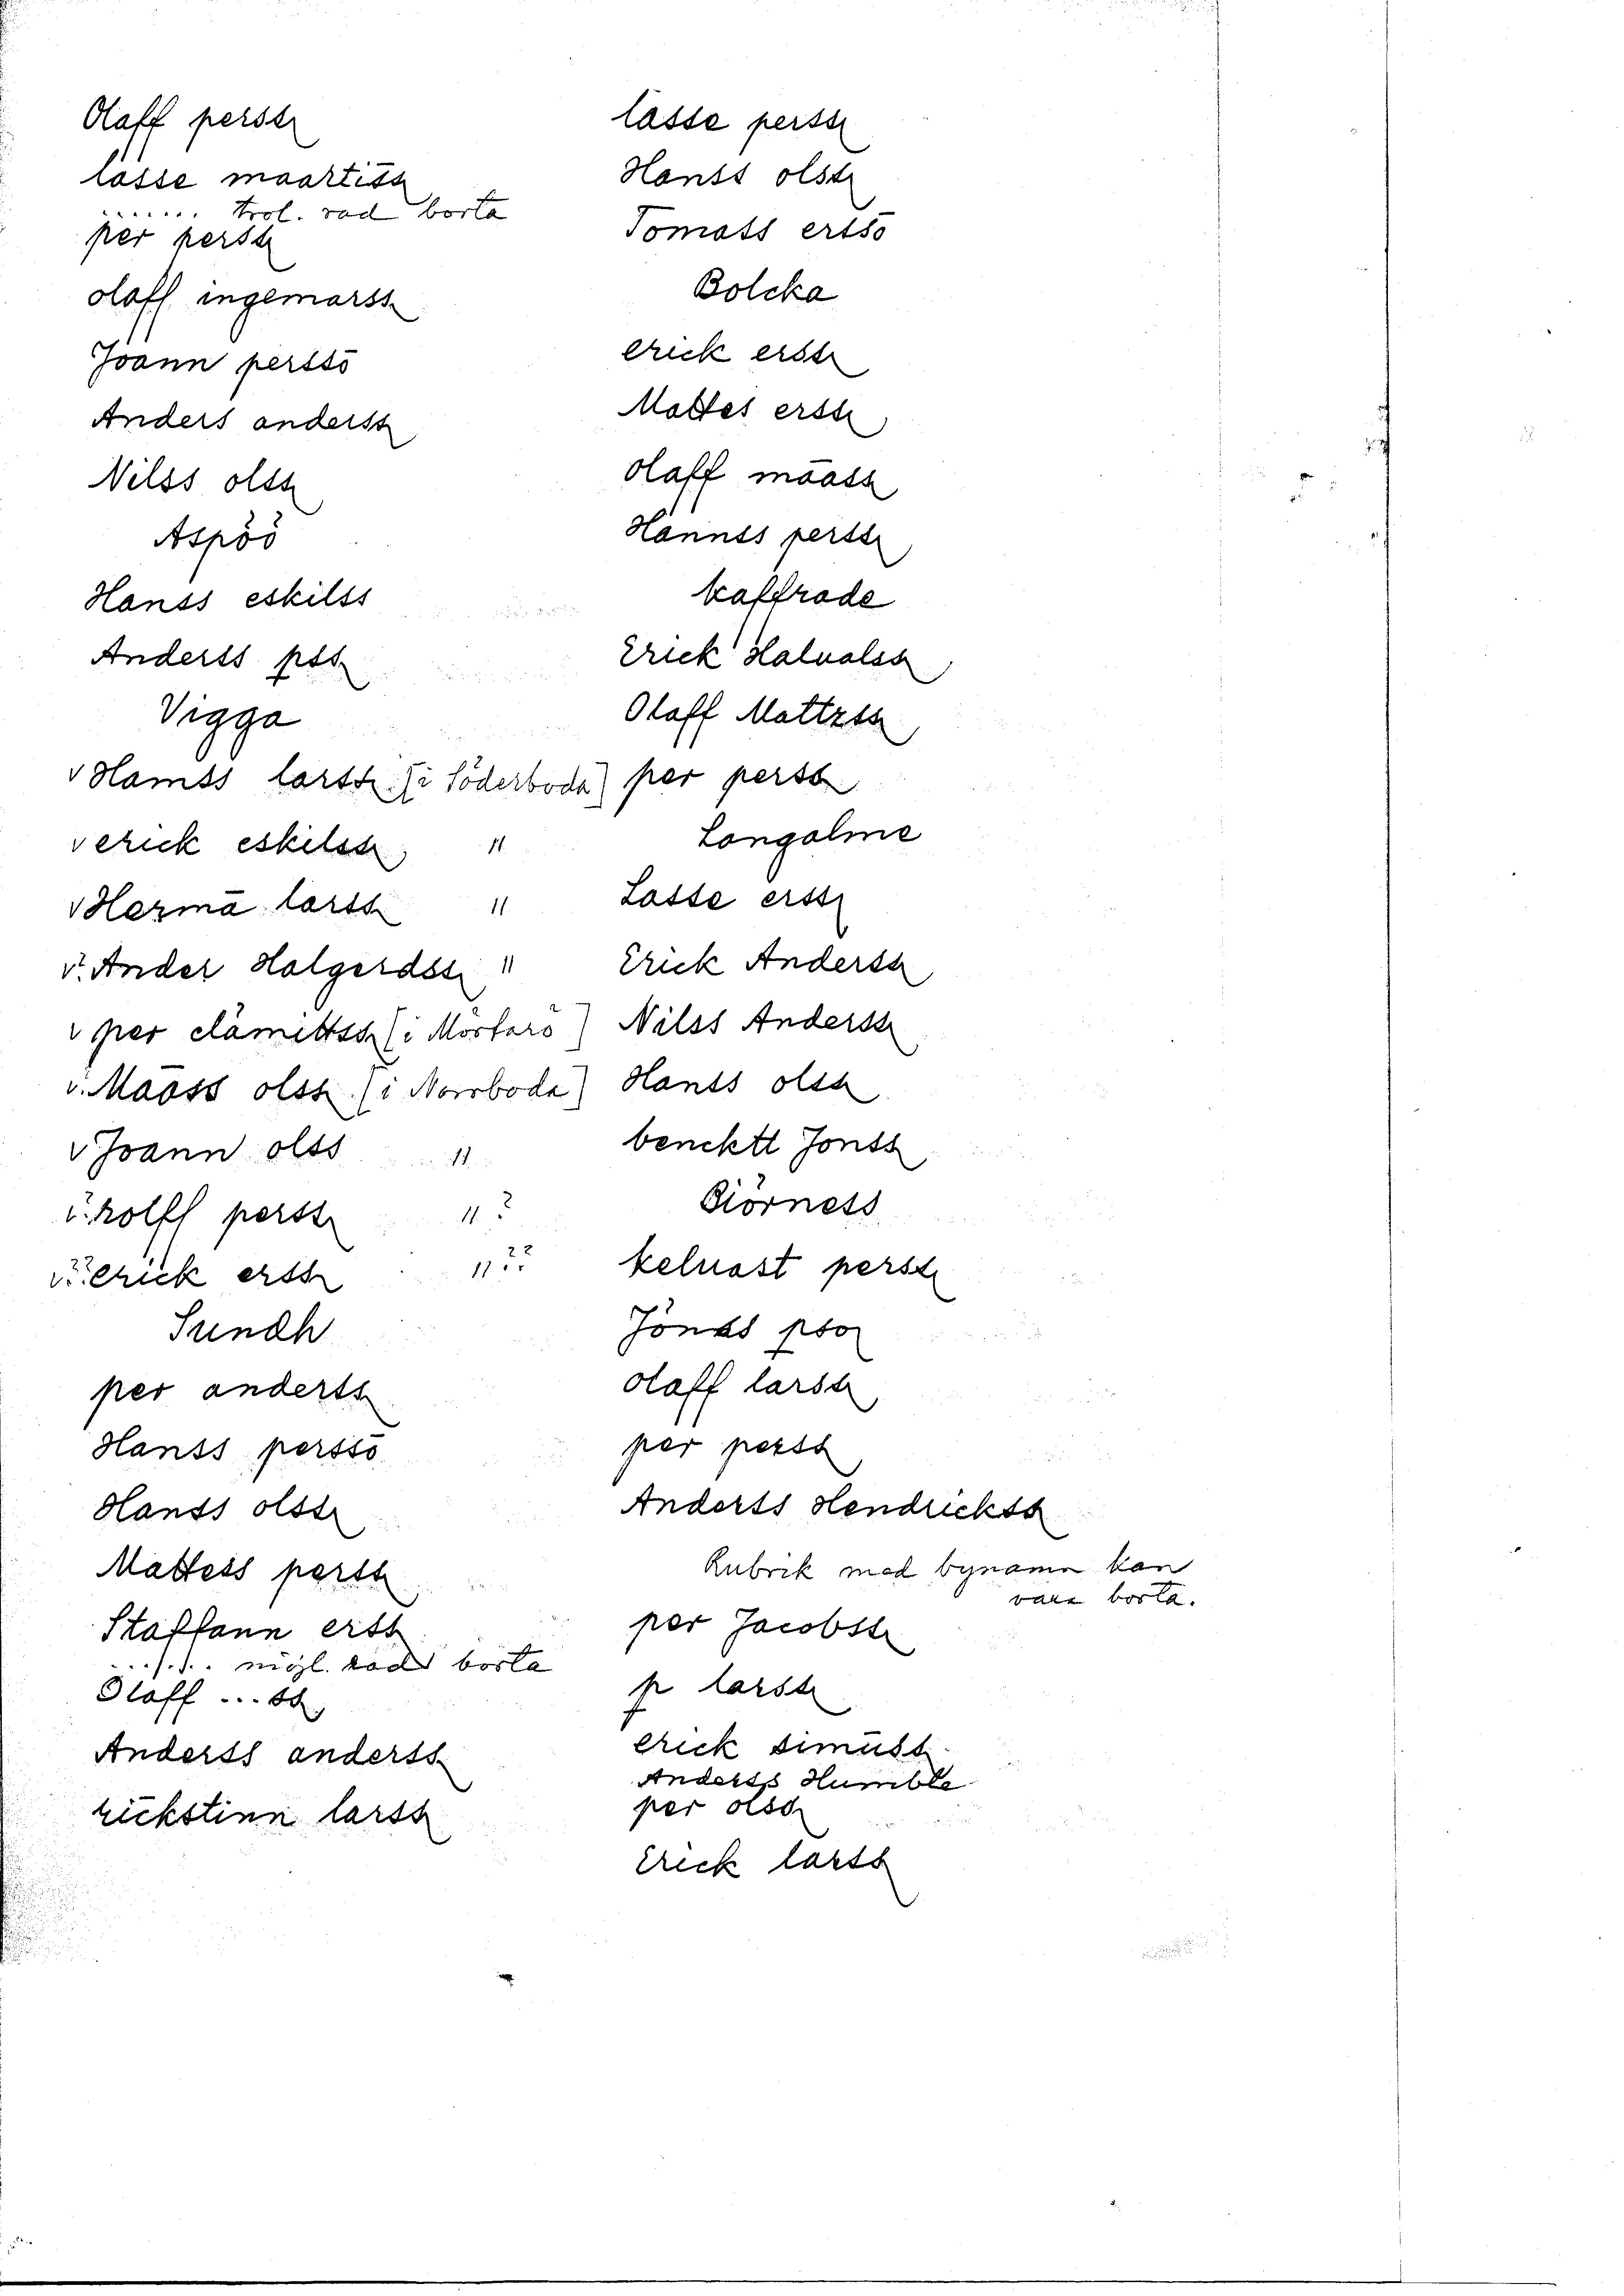 Olaff perss
lasse maartiss
....... trol. rad borta
per perss
olaff ingemarss
Joann persso
Anders anderss
Nilss olss
Aspöö
Hanss eskilss
Anderss pss
Vigga
v Hamss larss (i Söderboda)
v erick eskilss "
v Hermā larss "
v. Ander Halgerdss "
v per clämittss (i Mörtarö)
v. Maass olss (i Norrboda)
v Joann olss "
v. rolff perss " ?
v?? erick erss " ??
Sundh
per anderss
Hanss persso
Hanss olss
Mattess perss
Staffann erss
....... möjl. rad borta
Olaff ... ss
Anderss anderss
rickstinn larss
lasse perss
Hanss olss
Tomass ersso
Bolcka
erick erss
Mattes erss
olaff māass
Hannss perss
kaffrade
Erick Halualss
Olaff Mattzss
per perss
Longalme
Lasse erss
Erick Anderss
Nilss Anderss
Hanss olss
bencktt Jonss
Biörness
keluast perss
Jönss pso
olaff larss
per perss
Anderss Hendrickss
Rubrik med bynamn kan
vara borta.
per Jacobss
p larss
erick simuss
Anderss Humble
per olss
Erick larss